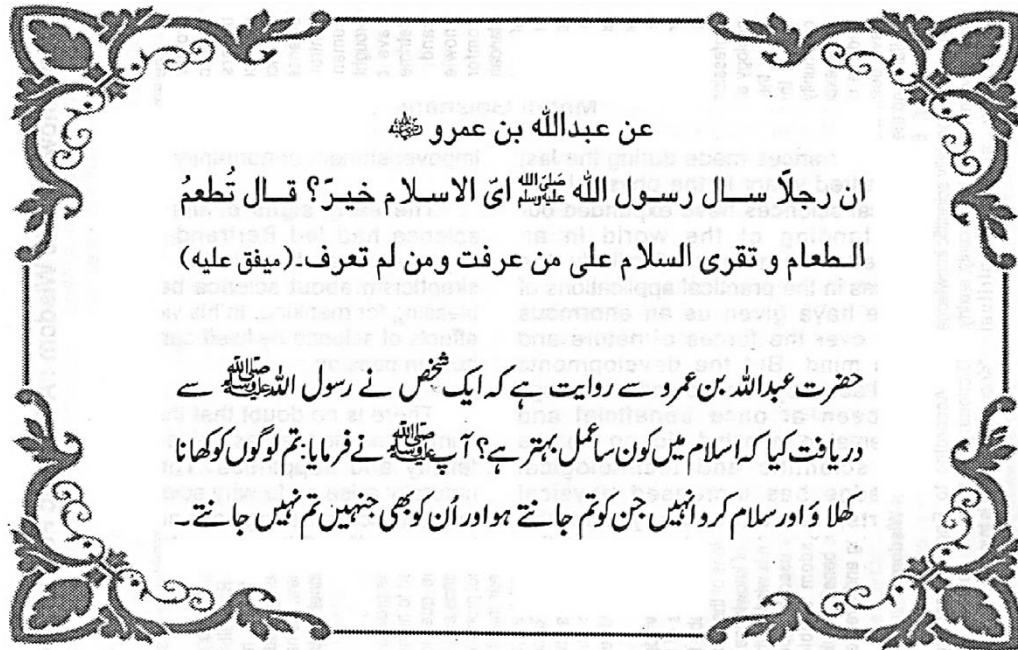 عن عبدالله بن عمرو رضی اللہ عنہ
ان رجلاً سال رسول الله ﷺ ایّ الاسلام خیرّ؟ قال تُطعمُ
الطعام و تقری السلام علی من عرفت ومن لم تعرف۔(میفق علیه)
حضرت عبداللہ بن عمرو سے روایت ہے کہ ایک شخص نے رسول اللہ ﷺ سے
دریافت کیا کہ اسلام میں کون سا عمل بہتر ہے؟ آپ ﷺ نے فرمایا: تم لوگوں کو کھانا
کھلاؤ اور سلام کرو انہیں جن کو تم جانتے ہو اور ان کو بھی جنہیں تم نہیں جانتے۔